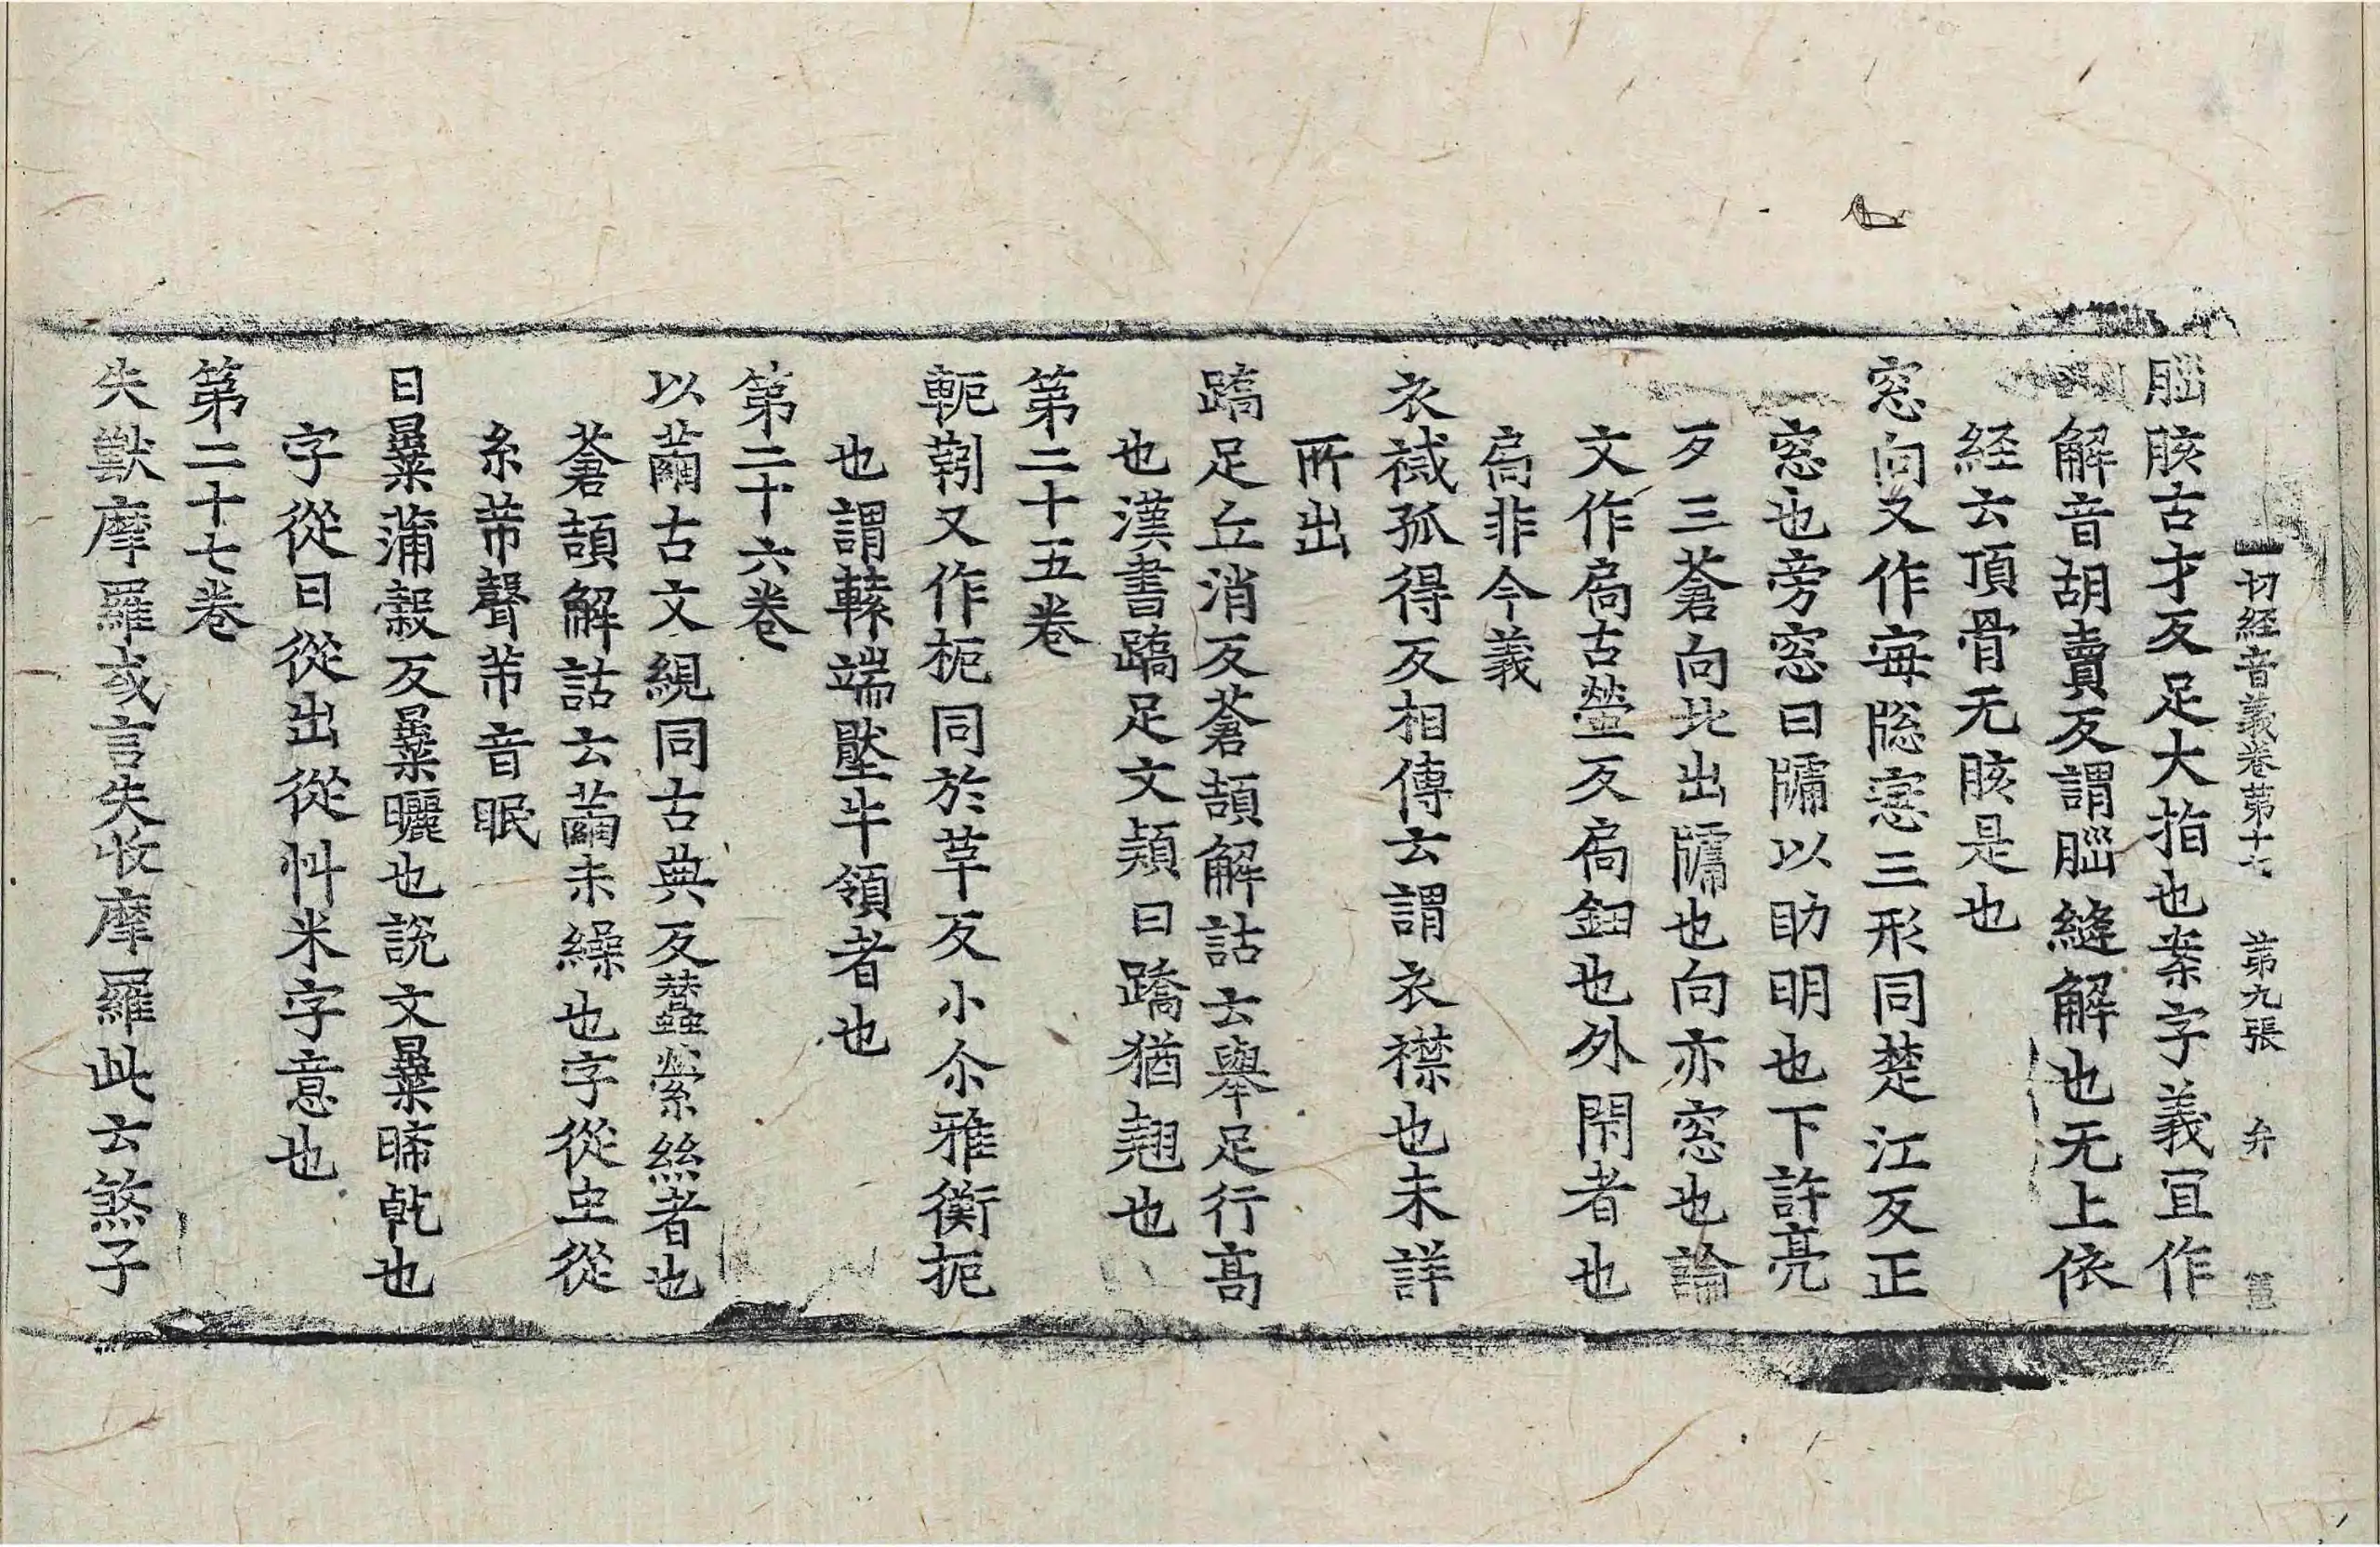 一切経音義卷第十七 第九張 弁
𦛁胲古才反足大指也案字義冝作
解音胡賣反謂𦛁縫解也无上依
経云頂骨无胲是也
窓向又作䆫牎窻三形同楚江反正
窓也旁窓曰牖以助明也下許亮
反三蒼向北出牖也向亦窓也論
文作扄古螢反扄鈕也外閇者也
扄非今義
衣祴孤得反相傳云謂衣襟也未詳
所出
蹻足丘消反蒼頡解詁云舉足行髙
也漢書蹻足文穎曰蹻猶翹也
第二十五卷
軛䩭又作枙同於革反小尒雅衡扼
也謂轅端壓牛領者也
第二十六卷
以蠒古文絸同古典反蠶縈絲者也
蒼頡解詁云蠒未繰也字從虫從
糸芇聲芇音眠
日㬥蒲穀反㬥曬也説文㬥晞乹也
字從日從出從廾米字意也
第二十七卷
失獸摩羅或言失收摩羅此云煞子